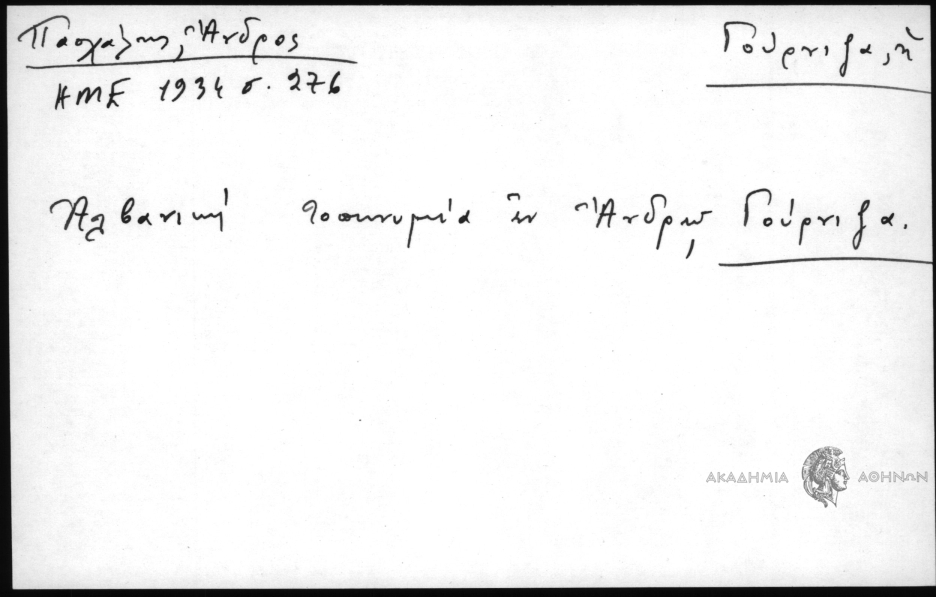 Πασχάλης, Ἄνδρος
Γούρνιζα, ἡ
ΗΜΕ 1934 σ. 276
Ἀλβανική τοπωνυμία ἐν Ἄνδρῳ Γούρνιζα.
ΑΚΑΔΗΜΙΑ ΑΘΗΝΩΝ